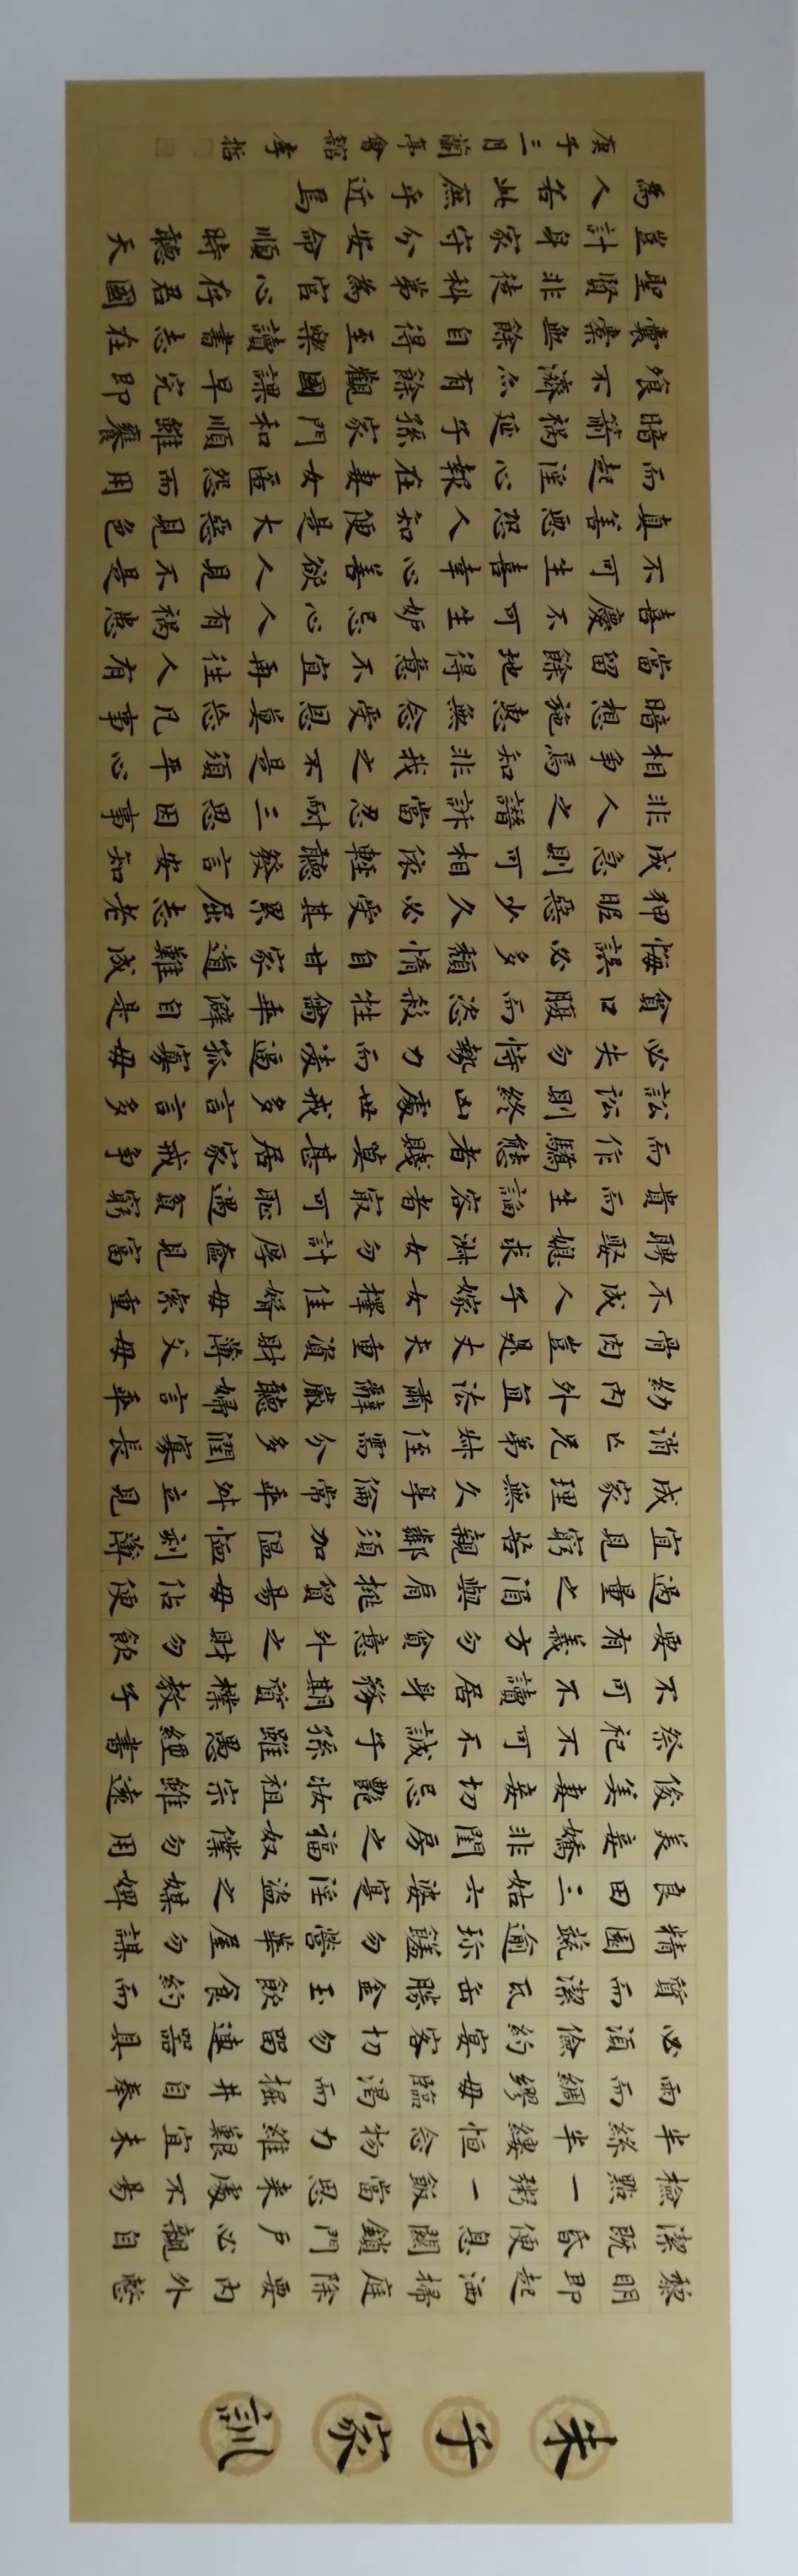 朱子家訓
黎明即起洒掃庭除要內外整
潔既昏便息關鎖門戶必親自
檢點一粥一飯當思來處不易
半絲半縷恒念物力維艱宜未
雨而綢繆毋臨渴而掘井自奉
必須儉約宴客切勿留連器具
質而潔瓦缶勝金玉飲食約而
精園蔬逾珍饈勿營華屋勿謀
良田三姑六婆寔淫盜之媒婢
美妾嬌非閨房之福奴僕勿用
俊美妻妾切忌艷妝祖宗雖遠
祭祀不可不誠子孫雖愚經書
不可不讀居身務期質樸教子
要有義方勿貪意外之財勿飲
過量之酒與肩挑貿易毋佔便
宜見窮苦親鄰須加溫恤刻薄
成家理無久享倫常乖舛立見
消亡兄弟叔侄需分多潤寡長
幼內外宜法肅辭嚴聽婦言乖
骨肉豈是丈夫重資財薄父母
不成人子嫁女擇佳婿毋索重
聘娶媳求淑女勿計厚奩見富
貴而生諂容者最可恥遇貧窮
而作驕態者賤莫甚居家戒爭
訟訟則終凶處世戒多言言多
必失勿恃勢力而凌逼孤寡毋
貪口腹而恣殺牲禽乖僻自是
悔誤必多頹惰自甘家道難成
狎昵惡少久必受其累屈志老
成急則可相依輕聽發言安知
非人之譖訴當忍耐三思因事
相爭焉知非我之不是須平心
暗想施惠無念受恩莫忘凡事
當留餘地得意不宜再往人有
喜慶不可生妒忌心人有禍患
不可生喜幸心善欲人見不是
真善惡恐人知便是大惡見色
而起淫心報在妻女匿怨而用
暗箭禍延子孫家門和順雖饔
飧不濟亦有餘觀國課早完即
囊橐無餘自得至樂讀書志在
聖賢非徒科第為官心存君國
豈計身家守分安命順時聽天
為人若此庶乎近焉
庚子三月蘭亭會館李哲